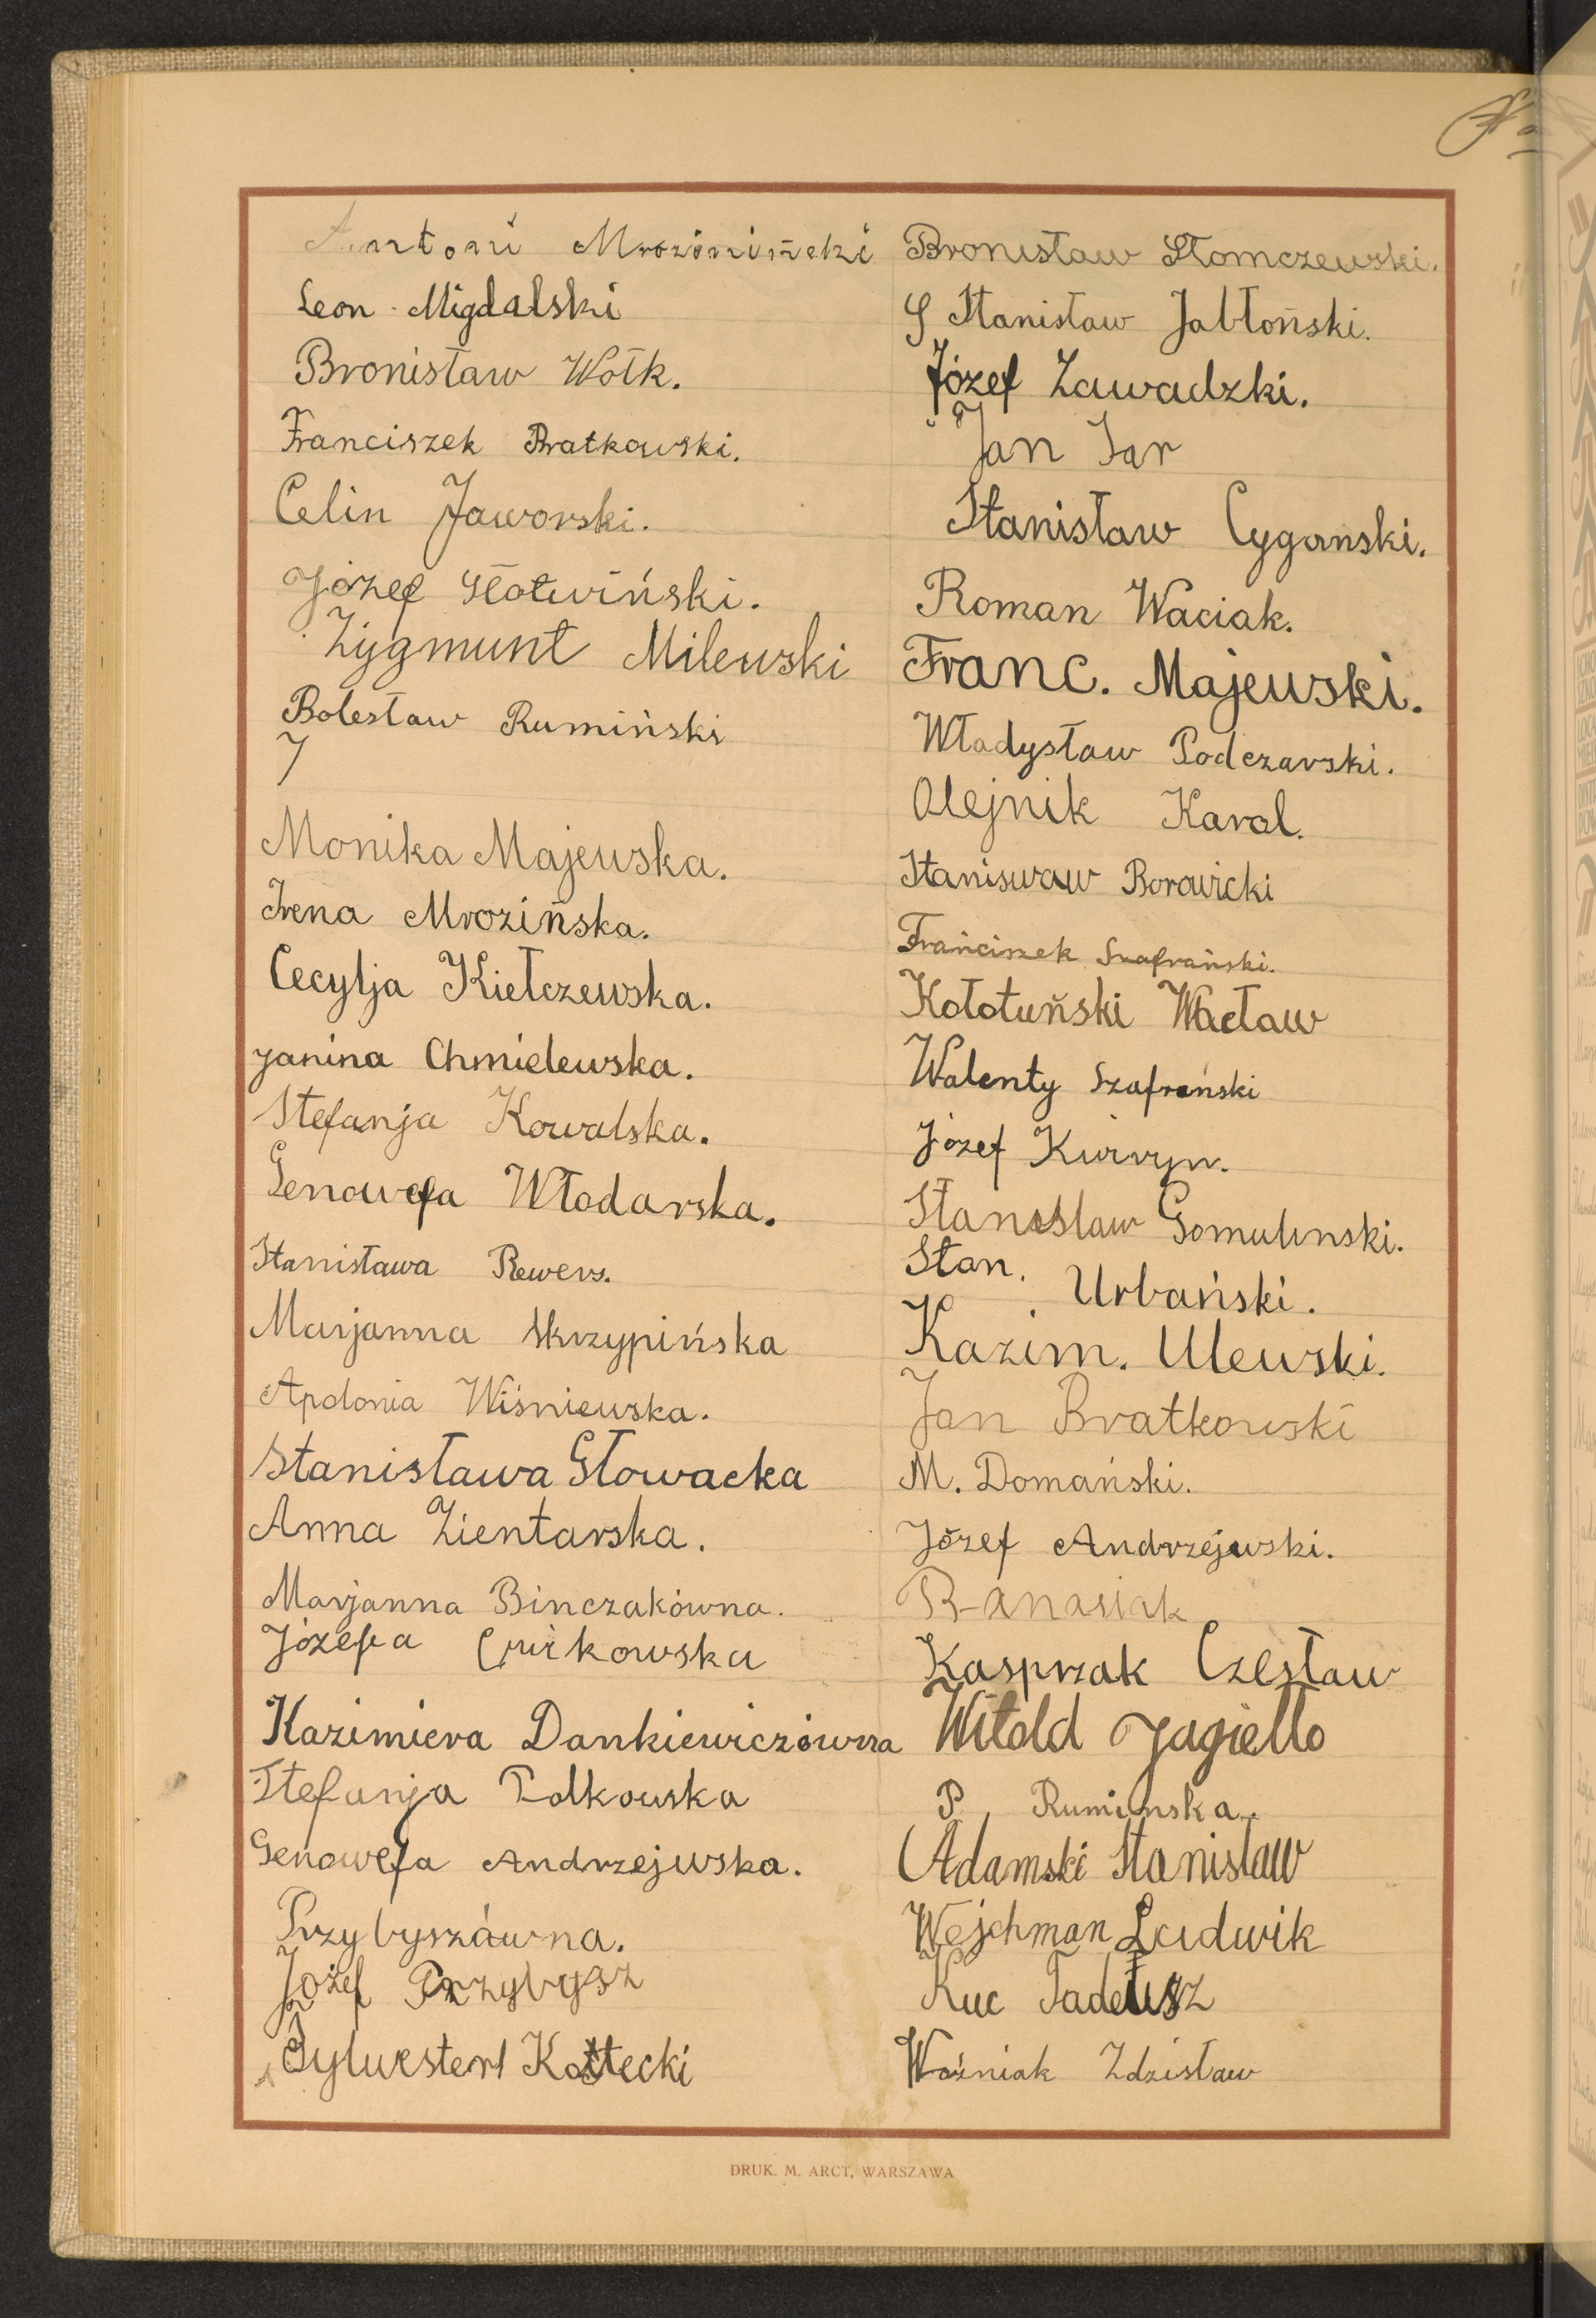 Antoni Mroziniński
Leon Migdalski
Bronisław Wołk.
Franciszek Bratkowski.
Celin Jaworski.
Józef Słotwiński.
Zygmunt Milewski
Bolesław Rumiński
J
Monika Majewska.
Irena Mrozińska.
Cecylja Kiełczewska.
Janina Chmielewska.
Stefanja Kowalska.
Genowefa Włodarska.
Stanisława Rewers.
Marjanna Skrzypińska
Apolonia Wiśniewska.
Stanisława Głowacka
Anna Zientarska.
Marjanna Binczakówna.
Józefa Ćwikowska
Kazimiera Dankiewiczówna
Stefanja Polkowska
Genowefa Andrzejwska.
Przybyszówna.
Józef Przybysz
Sylwester Kottecki
Bronisław Słomczewski.
S Stanisław Jabłoński.
Józef Zawadzki.
Jan Jar
Stanisław Cyganski.
Roman Waciak.
Franc. Majewski.
Władysław Podczarski.
Olejnik Karol.
Staniswaw Borowicki
Frańciszek Szafrański.
Kołotuński Wacław
Walenty Szafrański
Józef
Stanisław Gomulinski.
Stan. Urbański.
Kazim. Ulewski.
Jan Bratkowski
M. Domański.
Józef Andrzejewski.
Banasiak
Kasprzak Czesław
Witold Jagiełło
P. Ruminska.
Adamski Stanisław
Wejchman Ludwik
Kuc Tadeusz
Woźniak Zdzisław
DRUK. M. ARCT, WARSZAWA